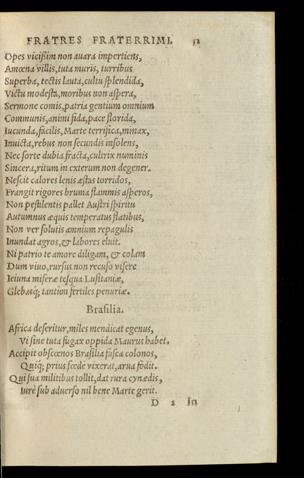 FRATRES FRATERRIMI. 52
Opes viciſſim non auara impertiens,
Amœna villis, tuta muris, turribus
Superba, tectis lauta, cultu ſplendida,
Victu modeſta, moribus non aſpera,
Sermone comis, patria gentium omnium
Communis, animi fida, pace florida,
Iucunda, facilis, Marte terrifica, minax,
Inuicta, rebus non ſecundis inſolens,
Nec ſorte dubia fracta, cultrix numinis
Sincera, ritum in exterum non degener.
Neſcit calores lenis æſtas torridos,
Frangit rigores bruma flammis aſperos,
Non peſtilentis pallet Auſtri ſpiritu
Autumnus æquis temperatus flatibus,
Non ver ſolutis amnium repagulis
Inundat agros, & labores eluit.
Ni patrio te amore diligam, & colam
Dum viuo, rurſus non recuſo viſere
Ieiuna miſeræ teſqua Luſitaniæ,
Glebasq́; tantùm fertiles penuriæ.
Braſilia.
Africa deſeritur, miles mendicat egenus,
Vi ſine tuta fugax oppida Maurus habet.
Accipit obſcœnos Braſilia fuſca colonos,
Quiq; prius fœde vixerat, arua fodit.
Qui ſua militibus tollit, dat rura cynædis,
Iure ſub aduerſo nil bene Marte gerit.
D 2 In